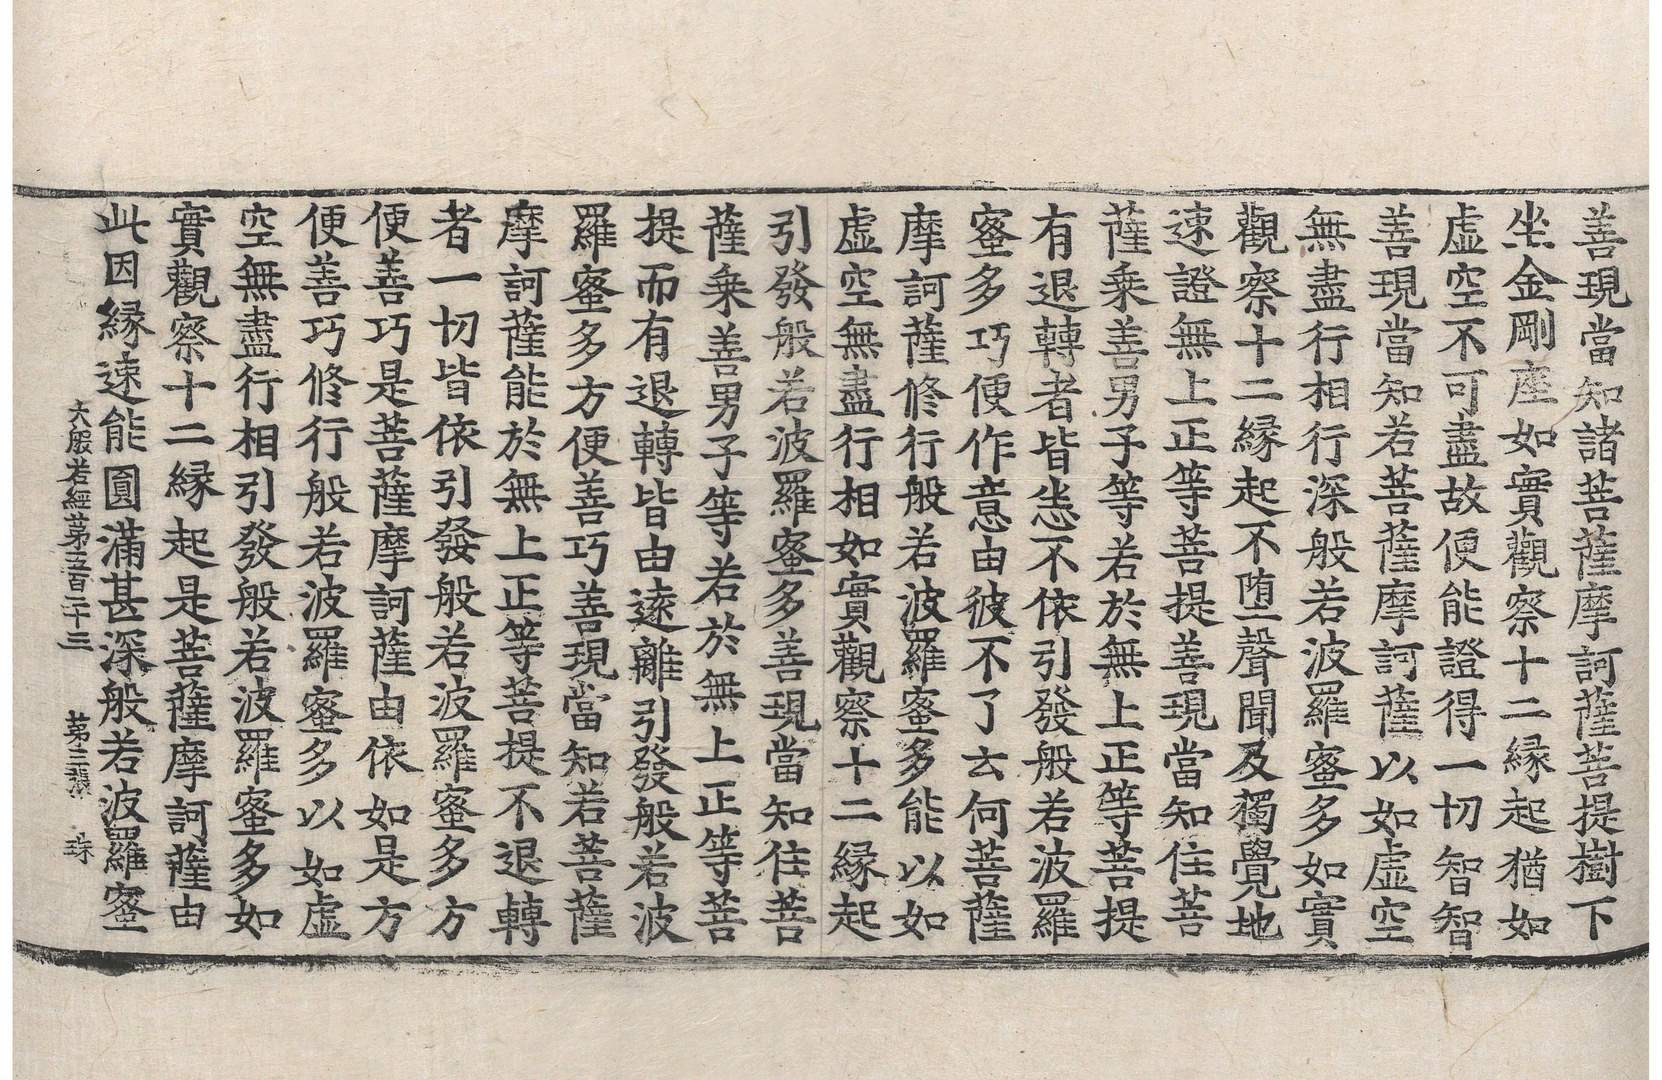 善現當知諸菩薩摩訶薩菩提樹下
坐金剛座如實觀察十二縁起猶如
虛空不可盡故便能證得一切智智
善現當知若菩薩摩訶薩以如虛空
無盡行相行深般若波羅蜜多如實
觀察十二縁起不堕聲聞及獨覺地
速證無上正等菩提善現當知住菩
薩乗善男子等若於無上正等菩提
有退轉者皆悉不依引發般若波羅
蜜多巧便作意由彼不了云何菩薩
摩訶薩修行般若波羅蜜多能以如
虛空無盡行相如實觀察十二縁起
引發般若波羅蜜多善現當知住菩
薩乗善男子等若於無上正等菩
提而有退轉皆由遠離引發般若波
羅蜜多方便善巧善現當知若菩薩
摩訶薩能於無上正等菩提不退轉
者一切皆依引發般若波羅蜜多方
便善巧是菩薩摩訶薩由依如是方
便善巧修行般若波羅蜜多以如虛
空無盡行相引發般若波羅蜜多如
實觀察十二縁起是菩薩摩訶薩由
此因縁速能圓滿甚深般若波羅蜜
大般若經苐五百二十三 苐三張 珠